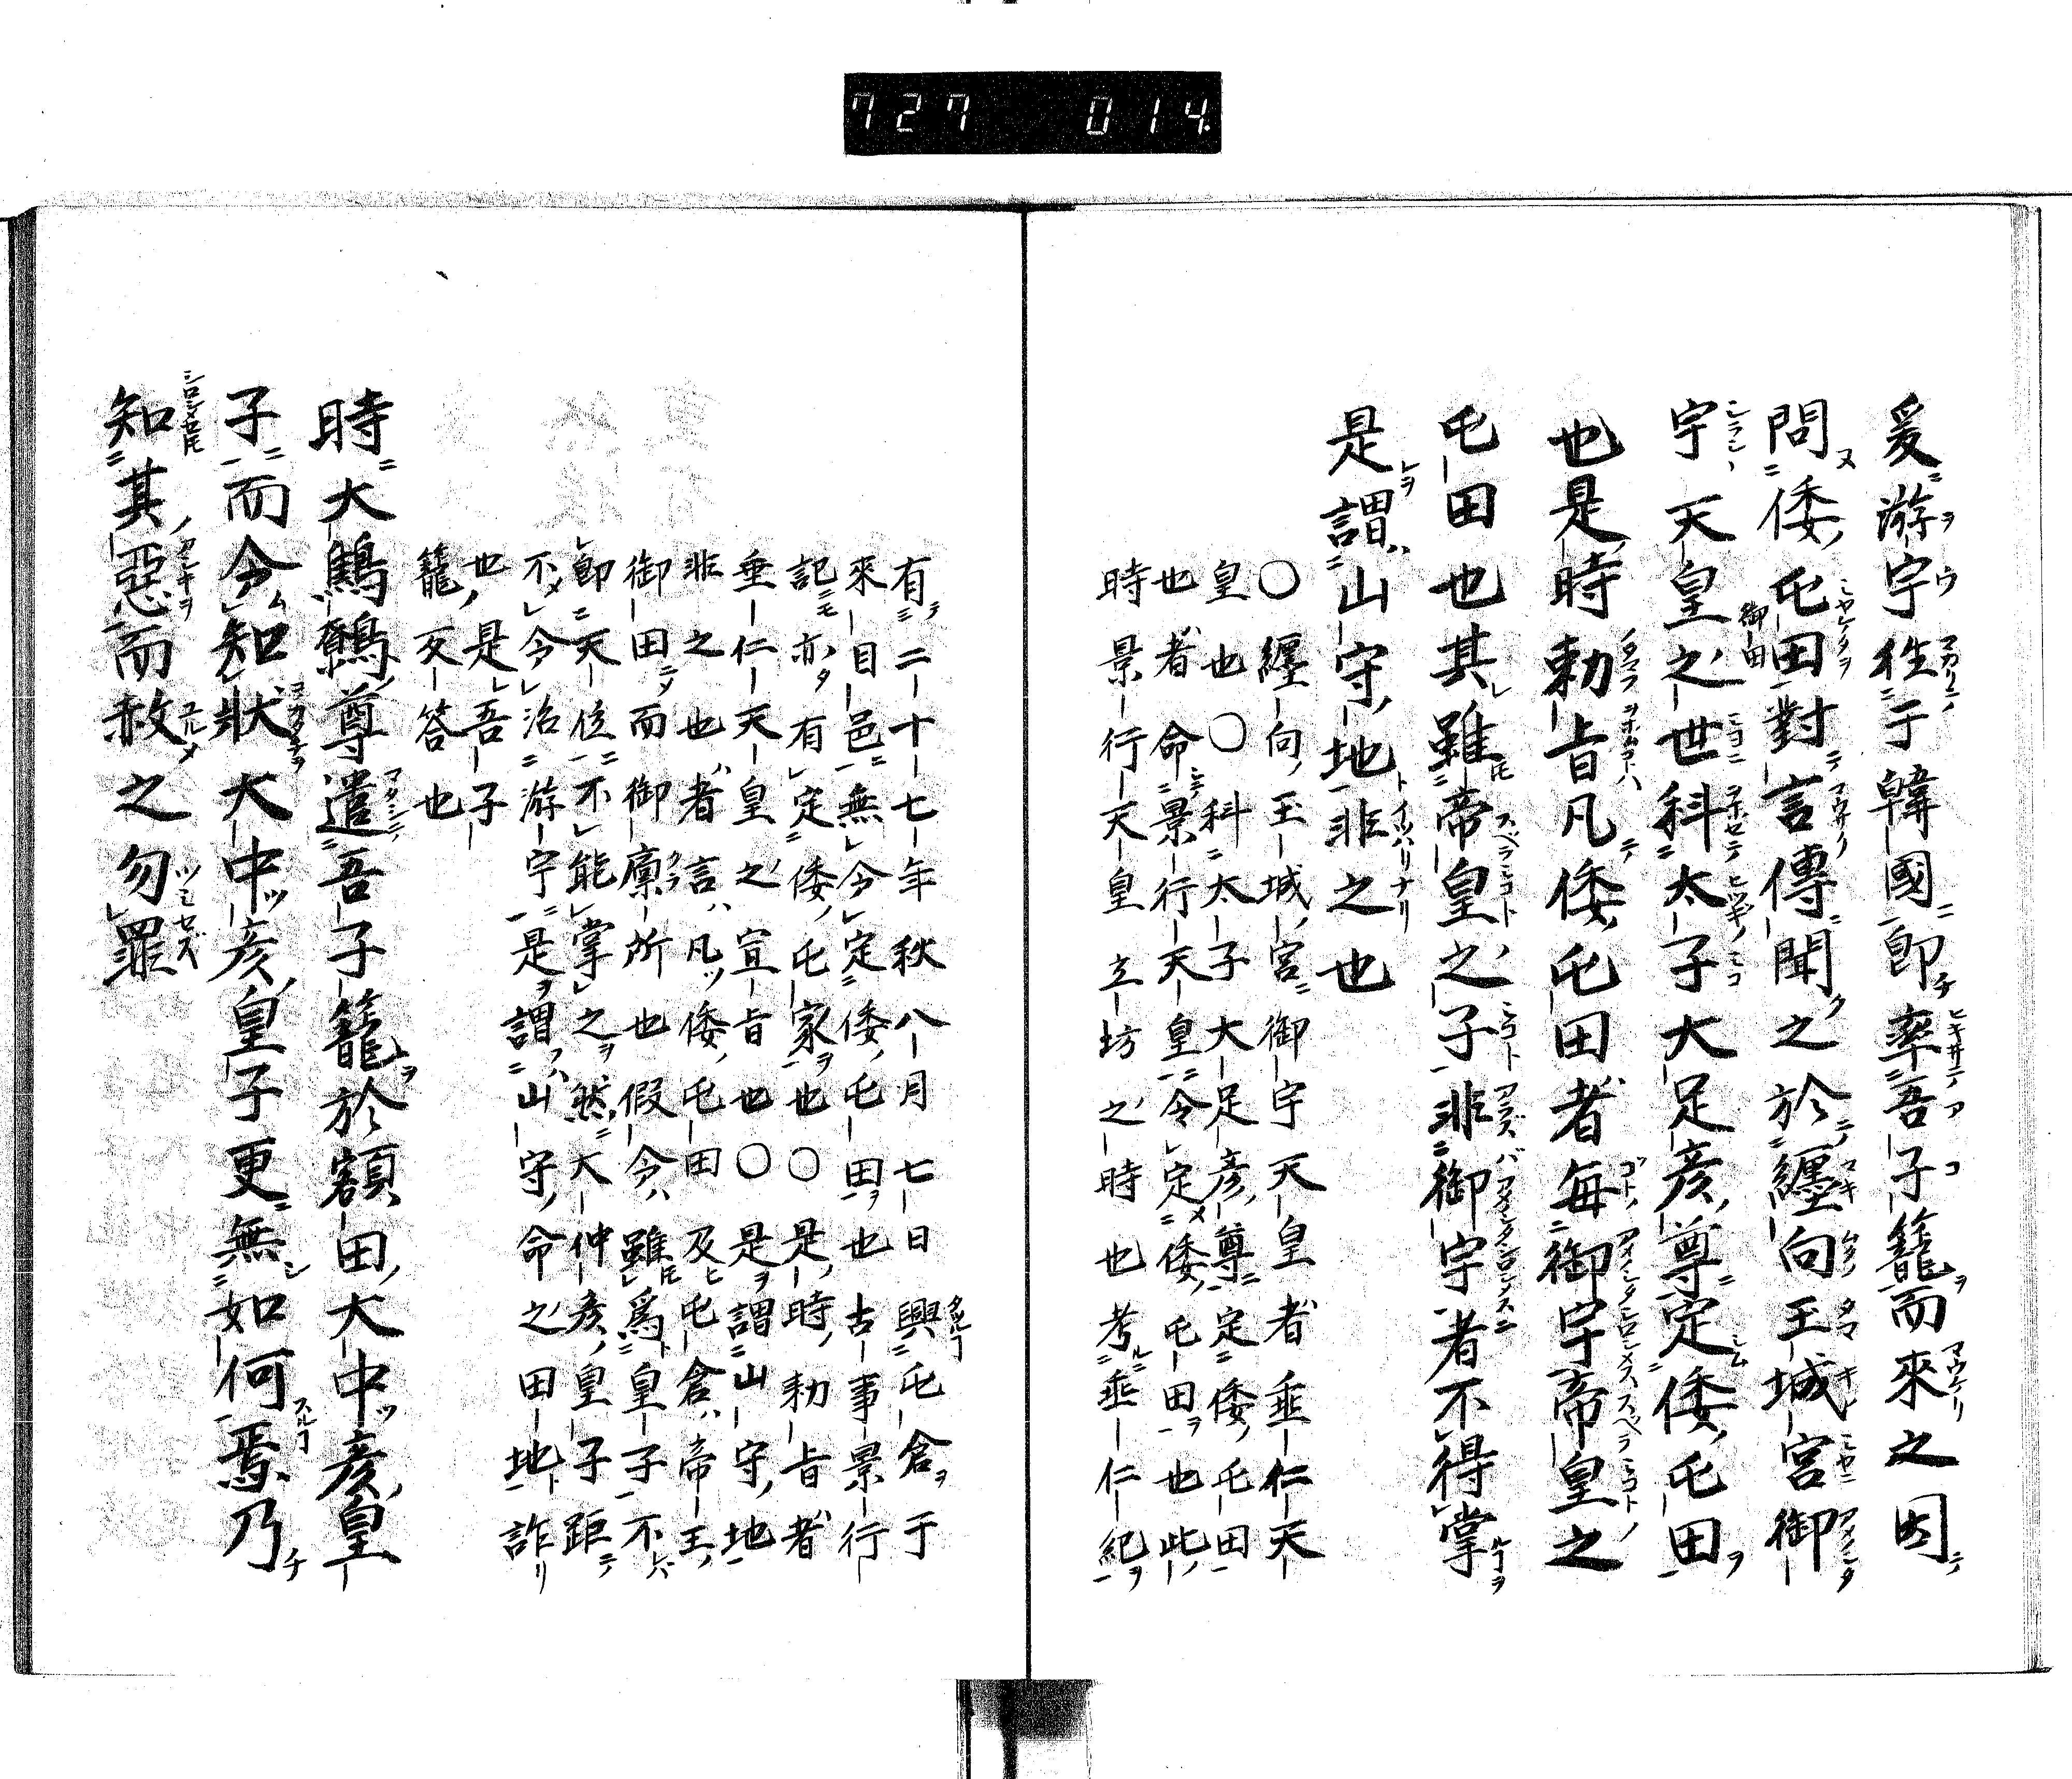 727 014
爰游宇徃于韓國即率吾子籠而來之因
問倭屯田對言傳聞之於纏向玉城宮御
宇天皇之世科太子大足彦尊定倭屯田
御田
也是時勅旨凡倭屯田者毎御宇帝皇之
屯田也其雖帝皇之子非御宇者不得掌
是謂山守地非之也
〇纏向玉城宮御宇天皇者垂仁天
皇也〇科太子大足彦尊定倭屯田
也者命景行天皇令定倭屯田也此
時景行天皇立坊之時也考垂仁紀
有二十七年秋八月七日興屯倉于
來目邑無令定倭屯田也古事景行
記亦有定倭屯家也〇是時勅旨者
垂仁天皇之宣旨也〇是謂山守地
非之也者言凡倭屯田及屯倉帝王
御田而御廩所也假令雖爲皇子不
即天位不能掌之然大仲彦皇子距
不令治游宇是謂山守命之田地詐
也是吾子
籠反答也
時大鷦鷯尊遣吾子籠於額田大中彦皇
子而令知狀大中彦皇子更無如何焉乃
知其惡而赦之勿罪